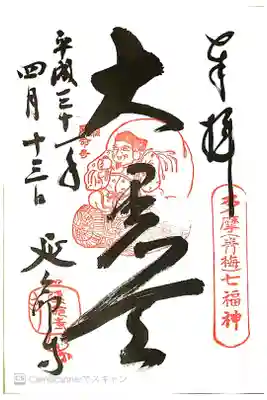 奉拝
多摩(青梅)七福神
大黒天
平成三十一年
四月十三日
延命寺
CamScannerでスキャン